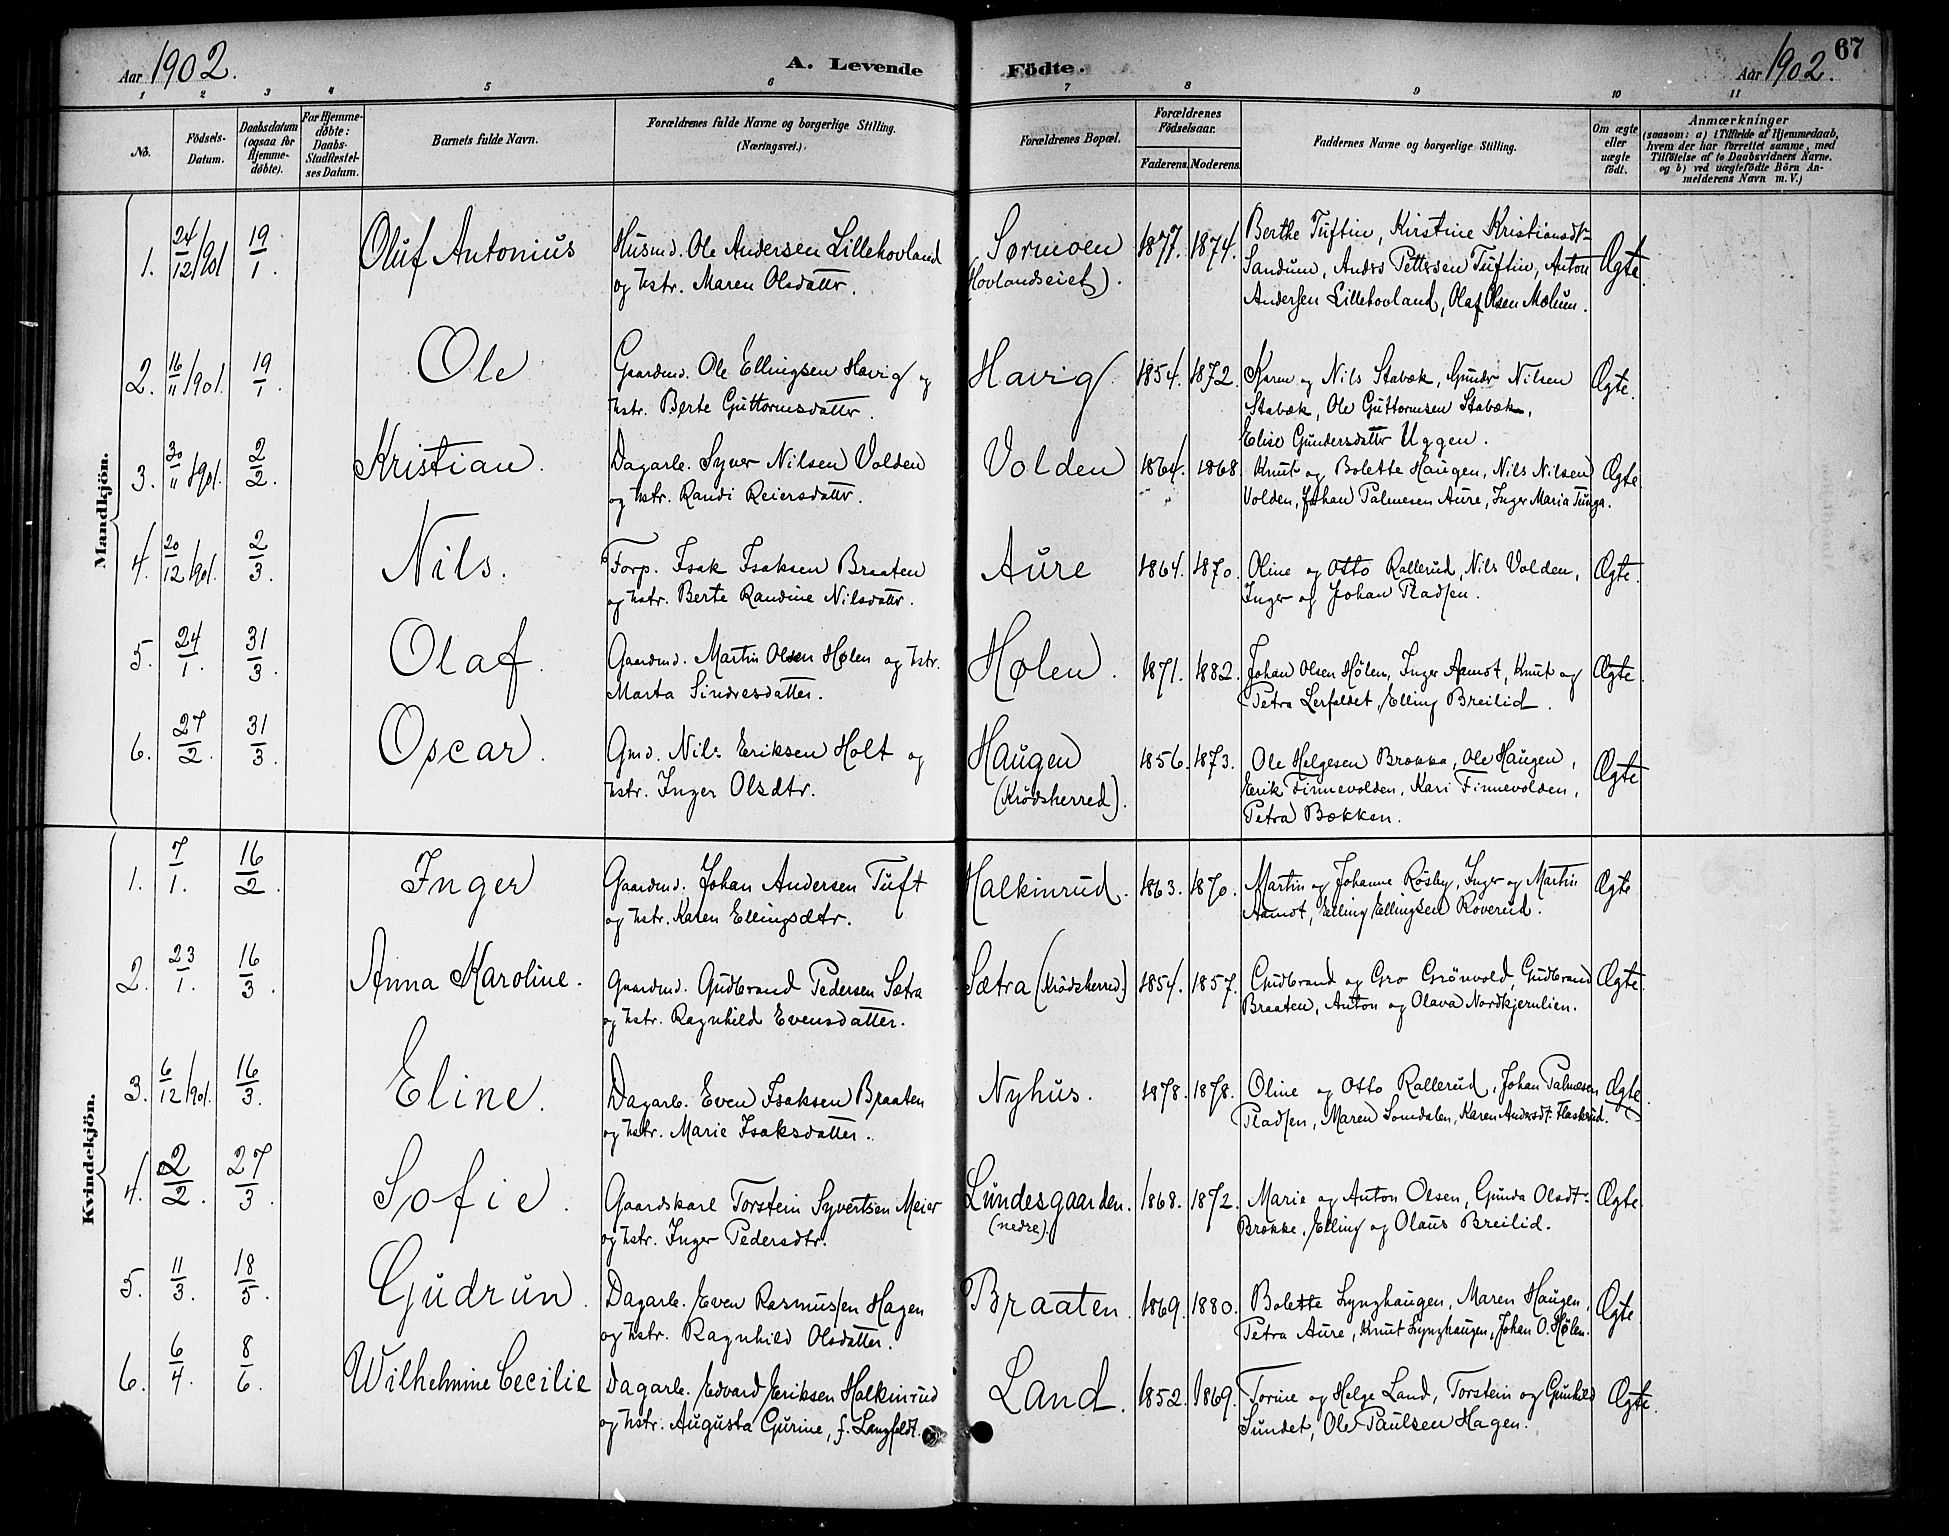 Aar 1902. A. Levende Födte. Aar 1902. 67
1 2 3 4 5 6 7 8 9 10 11
No. Födsels-Datum. Daabsdatum (ogsaa for Hjemmedöbte). For Hjemmedöbte: Daabs-Stadfæstelses Datum. Barnets fulde Navn. Forældrenes fulde Navne og borgerlige Stilling. (Næringsvei.) Forældrenes Bopæl. Forældrenes Födselsaar. Faderens. Moderens. Faddernes Navne og borgerlige Stilling. Om ægte eller uægte födt. Anmærkninger (saasom: a) i Tilfælde af Hjemmedaab, hvem der har forrettet samme, med Tilföielse af to Daabsvidners Navne, og b) ved uægtefödte Börn Anmelderens Navn m. V.)
Mandkjön.
1. 24/12/901 19/1. Oluf Antonius Husmd. Ole Andersen Lillehovland Sørmoen 1877. 1874. Berthe Tuftin, Kirstine Kristiansdt- Ægte.
og hstr. Maren Olsdattr. (Hovlandseiet). Sandum, Anders Pettersen Tuftin, Anton
Andersen Lillehovland, Olaf Olsen Molum.
2. 16/11/901. 19/1. Ole Gaardmd. Ole Ellingsen Havig og Havig 1854. 1872. Karen og Nils Stabæk, Gundr Nilsen Ægte.
hstr. Berte Guttormsdattr. Stabæk, Ole Guttormsen Stabæk,
Elise Gundersdattr Uggen.
3. 30/11 1901. 2/2. Kristian. Dagarb. Syver Nilsen Volden Volden 1864. 1868 Knut og Bolette Haugen, Nils Nilsen Ægte
og hstr. Randi Reiersdattr. Volden, Johan Palmesen Aure, Inger Maria Tunga.
4. 20/12/901. 2/3. Nils. Forp. Isak Isaksen Braaten Aure 1864. 1870. Oline og Otto Rallerud, Nils Volden, Ægte.
og hstr. Berte Randine Nilsdattr. Inger og Johan Pladsen.
5. 24/1. 31/3. Olaf. Gaardmd. Martin Olsen Hølen og hstr. Hølen. 1871. 1882. Johan Olsen Hølen, Inger Aamot, Knut og Ægte.
Marta Sindresdatter. Petra Lerfaldet, Elling Breilid.
6. 27/2. 31/3. Oscar. Gmd. Nils Eriksen Holt og Haugen 1856. 1873. Ole Helgesen Brokka, Ole Haugen, Ægte
hstr. Inger Olsdtr. (Krödsherred). Erik Finnevolden, Kari Finnevolden,
Petra Bækken.
Kvindekjön.
1. 7/1. 16/2. Inger Gaardmd. Johan Andersen Tuft Halkinrud. 1863. 1870. Martin og Johanne Røsby, Inger og Martin Ægte
og hstr. Karen Ellingsdtr. Aamot, Elling Ellingsen Roverud.
2. 23/1. 16/3. Anna Karoline. Gaardmd. Gudbrand Pedersen Sætra Sætra (Krödsherred.) 1854. 1857. Gudbrand og Gro Grönvold, Gudbrand Ægte.
og hstr. Ragnhild Evensdatter. Braaten, Anton og Olava Nordkjernlien.
3. 6/12/901. 16/3. Eline. Dagarb. Even Isaksen Braaten Nyhus. 1878. 1878. Oline og Otto Rallerud, Johan Palmesen Ægte.
og hstr. Marie Isaksdatter. Pladsen, Maren Somdalen, Karen Andersdt. Flaskerud.
4. 2/2. 27/3. Sofie. Gaardskarl Torstein Syvertsen Meier Lundesgaarden. 1868. 1872. Marie og Anton Olsen, Gunda Olsdt- Ægte.
og hstr. Inger Pedersdtr. (nedre). Brokke, Elling og Olaus Breilid.
5. 11/3. 18/5. Gudrun. Dagarb. Even Rasmussen Hagen Braaten. 1869. 1880. Bolette Lynghaugen, Maren Haugen, Ægte
og hstr. Ragnhild Olsdatter. Petra Aure, Knut Lynghaugen, Johan O. Hølen.
6. 6/4. 8/6. Wilhelmine Cecilie Dagarb. Edvard Eriksen Halkinrud Land. 1852. 1869. Torine og Helge Land, Torstein og Gunhild Ægte.
og hstr. Augusta Gurine, f. Langfeldt. Sundet, Ole Paulsen Hagen.